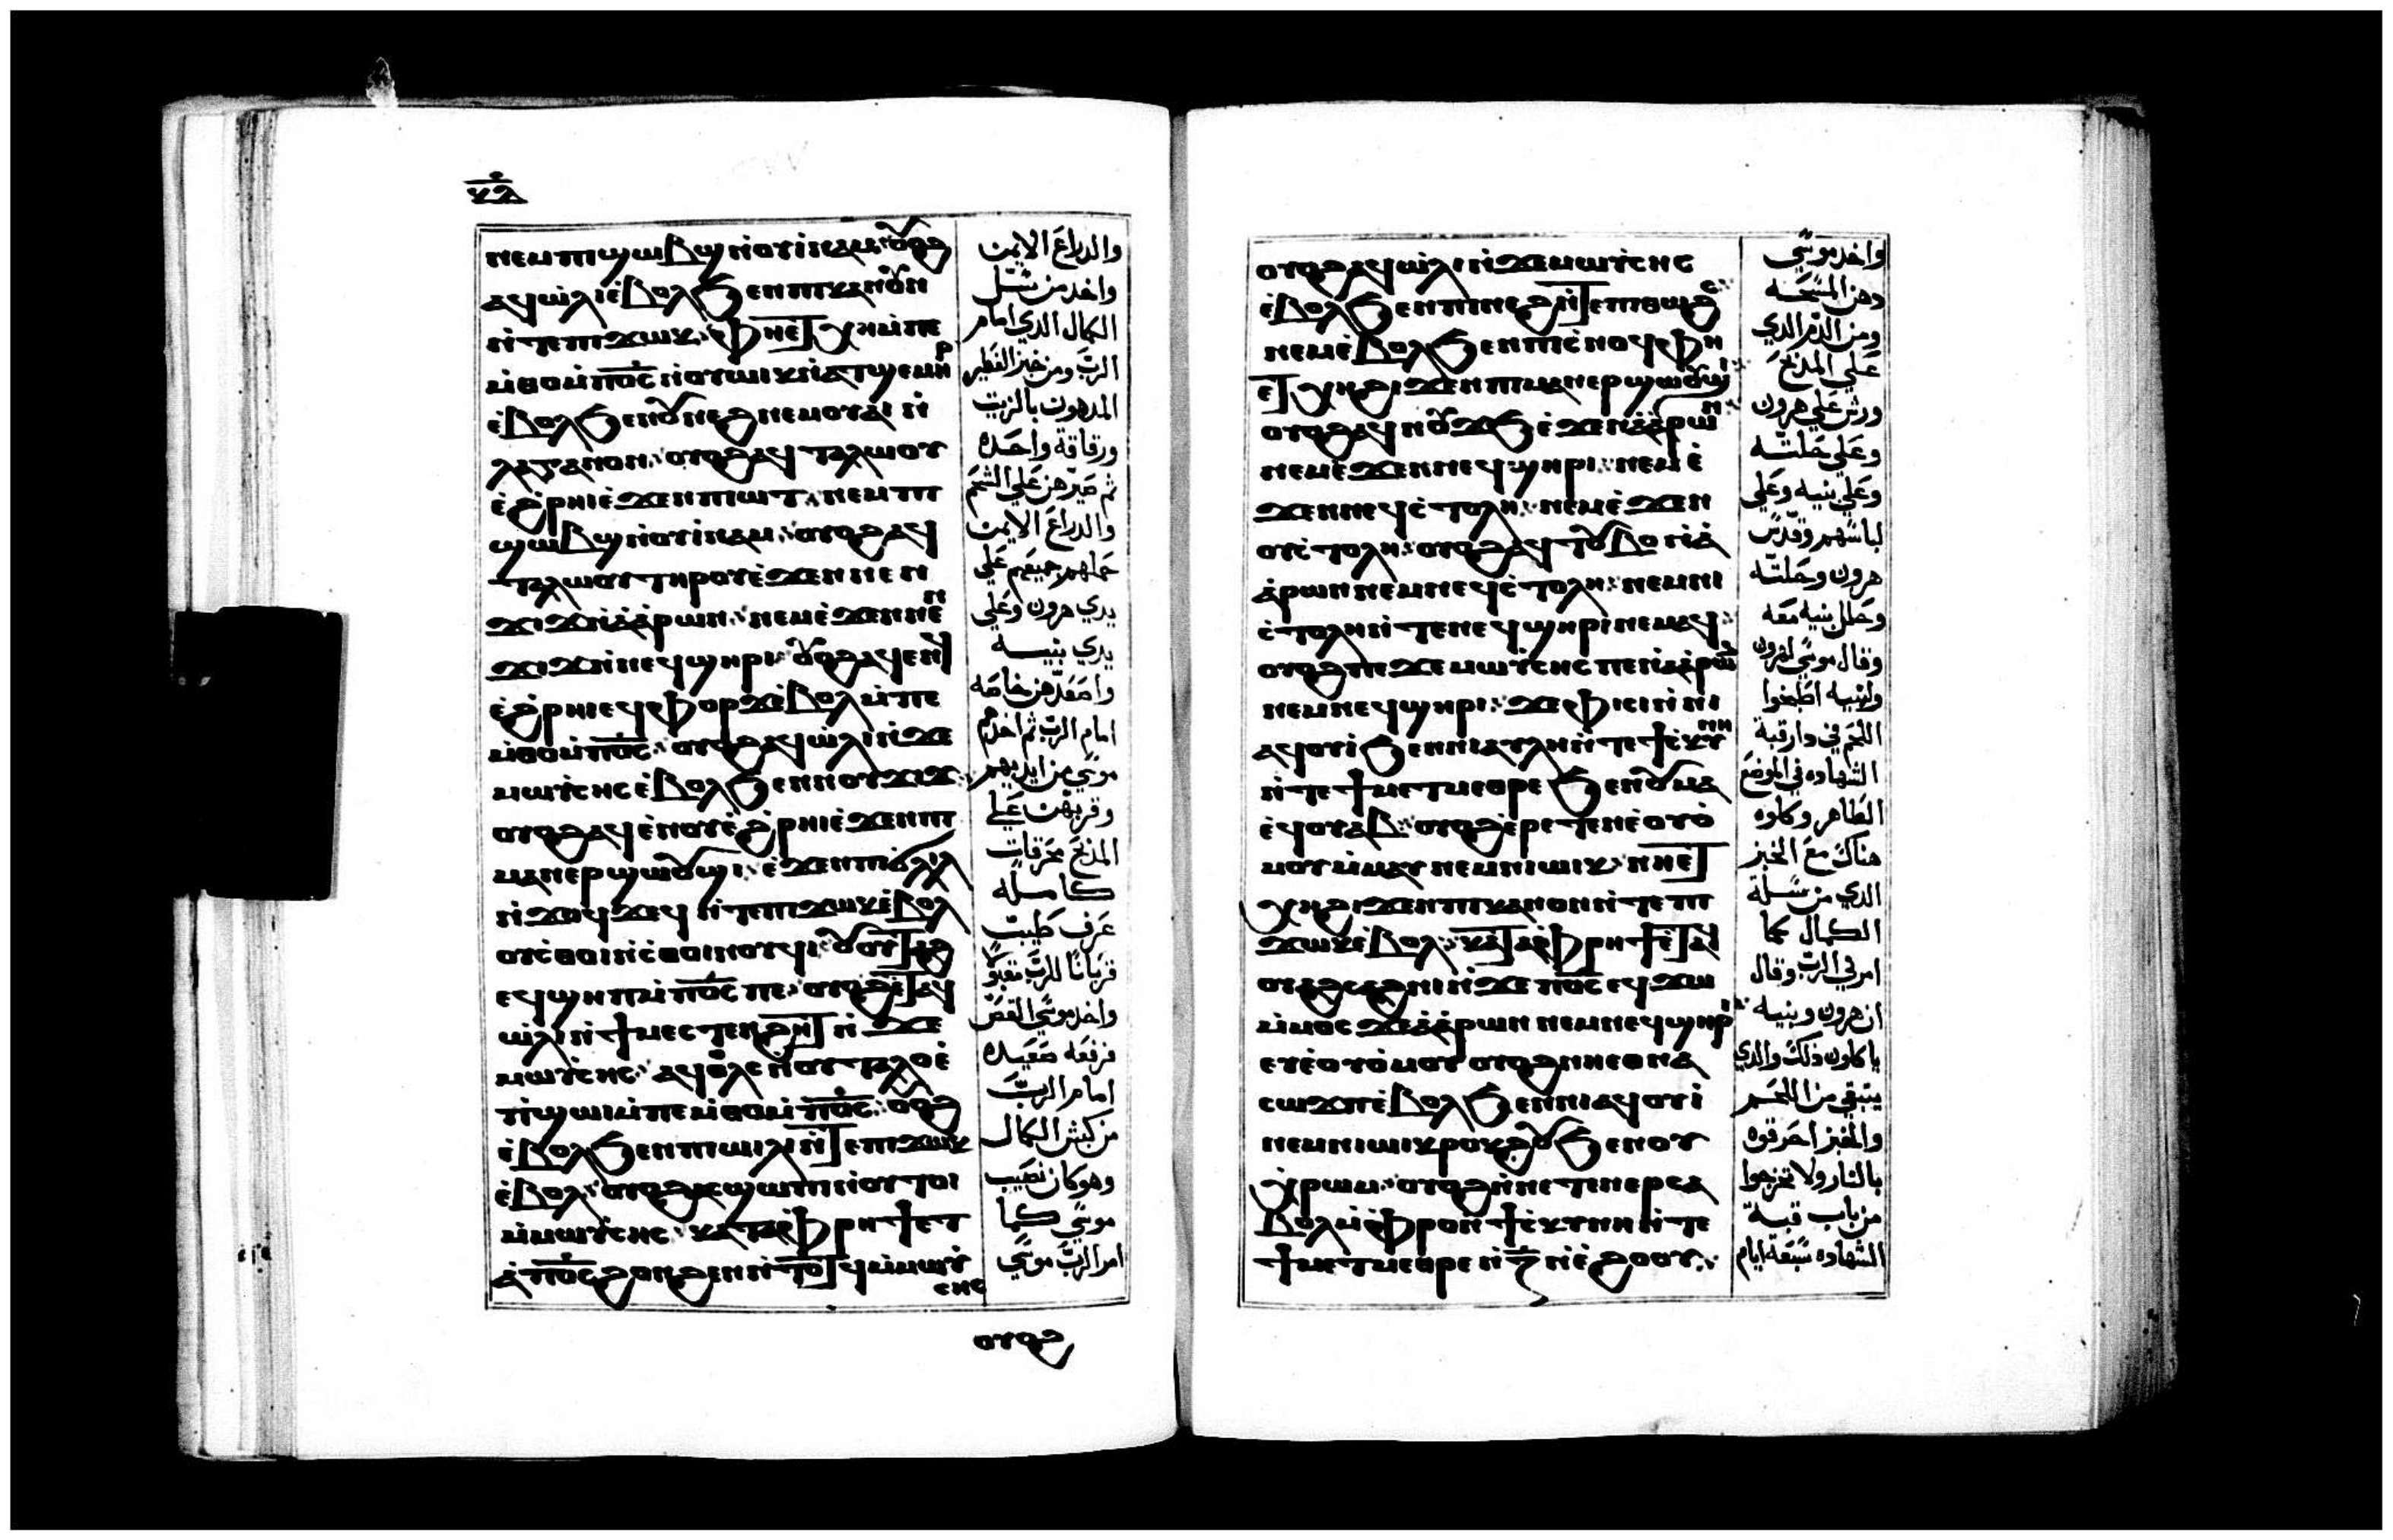 ⲕ̅ⲗ̅
ⲛⲉⲙⲡⲓϣⲱⲃϣ ⲛ̀ⲟⲩⲓ̀ⲛⲁⲙ ⲟⲩⲟϩ
ⲁϥⲱ̀ⲗⲓ ⲉ̀ⲃⲟⲗϧⲉⲛⲡⲓⲕⲁⲛⲟⲩⲛ
ⲛ̀ⲧⲉⲡϫⲱⲕ ⲫⲏⲉ̀ⲧⲭⲏⲙ̀ⲡⲉ
ⲙ̀ⲑⲟⲙ̀ⲡ̅ⲟ̅ⲥ̅ ⲛ̀ⲟⲩⲱⲓⲕ ⲛ̀ⲁⲧϣⲉⲙⲏⲣ
ⲉ̀ⲃⲟⲗϧⲉⲛⲟⲩⲛⲉϩ ⲛⲉⲙⲟⲩⲁⲓ ⲛ̀
ⲗⲁⲅⲁⲛⲟⲛ ⲟⲩⲟϩⲁϥⲧⲁⲗⲱⲟⲩ
ⲉ̀ϩ̀ⲣⲏⲓⲉ̀ϫⲉⲛⲡⲓⲱⲧ ⲛⲉⲙⲡⲓ
ϣⲱⲃϣ ⲛ̀ⲟⲩⲓ̀ⲛⲁⲙ ⲟⲩⲟϩⲁϥ
ⲧⲁⲗⲱⲟⲩ ⲧⲏⲣⲟⲩⲉ̀ϫⲉⲛ ⲛⲉⲛ
ϫⲓϫⲛ̀ⲁ̀ⲁ̀ⲣⲱⲛ ⲛⲉⲙⲉ̀ϫⲉⲛⲛⲉⲛ
ϫⲓϫⲛ̀ⲛⲉϥϣⲏⲣⲓ ⲟⲩⲟϩⲁϥⲉⲛⲟⲩ
ⲉ̀ϩ̀ⲣⲏⲓⲉϥⲫⲟⲣϫⲉ̀ⲃⲟⲗⲙ̀ⲡⲉ
ⲙ̀ⲑⲟⲙ̀ⲡ̅ⲟ̅ⲥ̅ ⲟⲩⲟϩⲁϥⲱ̀ⲗⲓⲛ̀ϫⲉ
ⲙⲱⲩ̀ⲥⲏⲥ ⲉ̀ⲃⲟⲗϧⲉⲛⲛⲟⲩϫⲓϫ
ⲟⲩⲟϩⲁϥⲉ̀ⲛⲟⲩⲉ̀ϩ̀ⲣⲏⲓⲉ̀ϫⲉⲛⲡⲓ
ⲙⲁⲛⲉⲣϣⲱⲟⲩϣⲓ ⲉ̀ϫⲉⲛⲡⲓϭ̀ⲗⲓⲗ
ⲛ̀ϫⲟϥϫⲉϥ ⲛ̀ⲧⲉⲡϫⲱⲕⲉ̀ⲃⲟⲗ
ⲟⲩⲥ̀ⲑⲟⲓⲛ̀ⲥ̀ⲑⲟⲓⲛⲟⲩϥⲓ ⲟⲩⲟⲩⲧⲁϩ
ⲉϥϣⲏⲡⲙ̀ⲡ̅ⲟ̅ⲥ̅ⲡⲉ ⲟⲩⲟϩⲉ̀ⲧⲁϥ
ⲱ̀ⲗⲓⲛ̀ϯⲙⲉⲥⲧⲉⲛϩⲏⲧ ⲛ̀ϫⲉ
ⲙⲱⲩ̀ⲥⲏⲥ ⲁϥⲟⲗⲥ ⲛ̀ⲟⲩⲧⲁⲗⲟⲉ̀
ⲡ̀ϣⲱⲓⲙ̀ⲡⲉⲙ̀ⲑⲟⲙ̀ⲡ̅ⲟ̅ⲥ̅ ⲟⲩⲟϩ
ⲉ̀ⲃⲟⲗϧⲉⲛⲡⲓⲱⲓⲗⲓ ⲛ̀ⲧⲉⲡϫⲱⲕ
ⲉ̀ⲃⲟⲗ ⲟⲩⲟϩⲁⲥϣⲱⲡⲓⲛ̀ⲟⲩⲧⲟⲓ
ⲙ̀ⲙⲱⲩ̀ⲥⲏⲥ ⲕⲁⲧⲁⲫ̀ⲣⲏϯⲉⲧ
ⲁ̀ⲡ̅ⲟ̅ⲥ̅ϩⲟⲛϩⲉⲛ ⲛ̀ⲧⲟⲧϥⲙ̀ⲙⲱⲩ̀
ⲥⲏⲥ
والدراع الايمن
واخد من سَلّ
الكمال الدي امام
الربّ ومن خبز الفطير
المدهون بالزيت
ورقاقة واحده
ثم صيرهن علي الشحم
والدراع الايمن
حملهم جميعهم علي
يدي هرون وعَلي
يدي بنيــه
واصعَدهن خاصَه
امام الربّ ثم اخدهم
موسَي من ايديهم
وقربهن علي
المدبح محرقات
كامله
عَرف طَيبَت
قربَانًا للربّ مقبَولا
واخد موسَي القصّ
فرفعَه صَعَيده
امام الربّ
من كبش الكمال
وهو كان نصَيب
موسَي كما
امر الربّ موسَي
ⲟⲩⲟϩ
ⲟⲩⲟϩⲁϥⲱ̀ⲗⲓⲛ̀ϫⲉⲙⲱⲩ̀ⲥⲏⲥ
ⲉ̀ⲃⲟⲗϧⲉⲛⲡⲓⲛⲉϩⲛ̀ⲧⲉⲡⲑⲱϩⲥ
ⲛⲉⲙⲉ̀ⲃⲟⲗϧⲉⲛⲡⲓⲥⲛⲟϥ ⲫⲏ
ⲉⲧⲭⲏϩⲓϫⲉⲛⲡⲓⲙⲁⲛⲉⲣϣⲱⲟⲩϣⲓ
ⲟⲩⲟϩⲁϥⲛⲟⲩϫϧⲉ̀ϫⲉⲛⲁ̀ⲁ̀ⲣⲱⲛ
ⲛⲉⲙⲉ̀ϫⲉⲛⲛⲉϥϣⲏⲣⲓ ⲛⲉⲙⲉ̀
ϫⲉⲛⲛⲉϥⲥ̀ⲧⲟⲗⲏ ⲛⲉⲙⲉ̀ϫⲉⲛ
ⲟⲩⲥ̀ⲧⲟⲗⲏ ⲟⲩⲟϩⲁϥⲧⲟⲩⲃⲟⲛ̀ⲁ̀
ⲁ̀ⲣⲱⲛ ⲛⲉⲙⲛⲉϥⲥ̀ⲧⲟⲗⲏ ⲛⲉⲙⲛⲓ
ⲥ̀ⲧⲟⲗⲏⲛ̀ⲧⲉⲛⲉϥϣⲏⲣⲓⲛⲉⲙⲁϥ
ⲟⲩⲟϩⲡⲉϫⲉⲙⲱⲩ̀ⲥⲏⲥ ⲡⲉⲛ̀ⲁ̀ⲁ̀ⲣⲱⲛ
ⲛⲉⲙⲛⲉϥϣⲏⲣⲓ ϫⲉⲫⲓⲥⲓⲛ̀ⲛⲓ
ⲁϥⲟⲩⲓ̀ϧⲉⲛⲛⲓⲁⲩⲗⲏⲛ̀ⲧⲉϯⲥ̀ⲕⲩⲛⲏ
ⲛ̀ⲧⲉϯⲙⲉⲧⲙⲉⲑⲣⲉ ϧⲉⲛⲟⲩⲙⲁ
ⲉ̀ϥⲟⲩⲁⲃ ⲟⲩⲟϩⲉ̀ⲣⲉⲧⲉⲛⲉ̀ⲟⲩⲟ̀
ⲙⲟⲩⲙ̀ⲙⲁⲩ ⲛⲉⲙⲛⲓⲱⲓⲕ ⲛⲏⲉⲧ
ⲭⲏϩⲓϫⲉⲛⲡⲓⲕⲁⲛⲟⲩⲛⲛ̀ⲧⲉⲡ
ϫⲱⲕⲉ̀ⲃⲟⲗ ⲕⲁⲧⲁⲫ̀ⲣⲏϯⲉ̀ⲧⲁϥ
ⲟⲩⲁϩⲥⲁϩⲛⲓⲛ̀ϫⲉⲡ̅ⲟ̅ⲥ̅ ⲉϥϫⲱ
ⲙ̀ⲙⲟⲥ ϫⲉⲁ̀ⲁ̀ⲣⲱⲛ ⲛⲉⲙⲛⲉϥϣⲏⲣⲓ
ⲉⲩⲉ̀ⲟⲩⲟ̀ⲙⲟⲩ ⲟⲩⲟϩⲛⲏⲉⲑⲛⲁ
ⲥⲱϫⲡⲉ̀ⲃⲟⲗϧⲉⲛⲛⲓⲁϥⲟⲩⲓ̀
ⲛⲉⲙⲛⲓⲱⲓⲕ ⲣⲟⲕϩⲟⲩϧⲉⲛⲟⲩ
ⲭ̀ⲣⲱⲙ ⲟⲩⲟϩⲛ̀ⲛⲉⲧⲉⲛⲉⲣⲥⲁ
ⲃⲟⲗⲙ̀ⲫ̀ⲣⲟⲛϯⲥ̀ⲕⲩⲛⲏⲛ̀ⲧⲉ
ϯⲙⲉⲧⲙⲉⲑⲣⲉ ⲛ̀ⲍ̅ⲛ̀ⲉ̀ϩⲟⲟⲩ
واخد موسَي
دهن المسَحَــه
ومن الدّم الدي
عَلي المدبح
ورش عَلي هرون
وعَلي حَلتـّه
وعَلي بنيه وعَلي
لباسَهم وقدّس
هرون وحَلتّه
وحَلل بنيه معَه
وقال موسَي لهرون
ولبنيه اطبخوا
اللحَم في دار قبة
الشهاده في الموضَع
الطَاهر وكلوه
هناك معَ الخبز
الدي من سَلة
الكمال كما
امرني الربّ وقال
ان هرون وبنيه
ياكلون دلك والدي
يتبقي من اللحَم
والخبز احَرقوه
بالنار ولا تخرجوا
من باب قبــة
الشهاده سَبعَة ايام